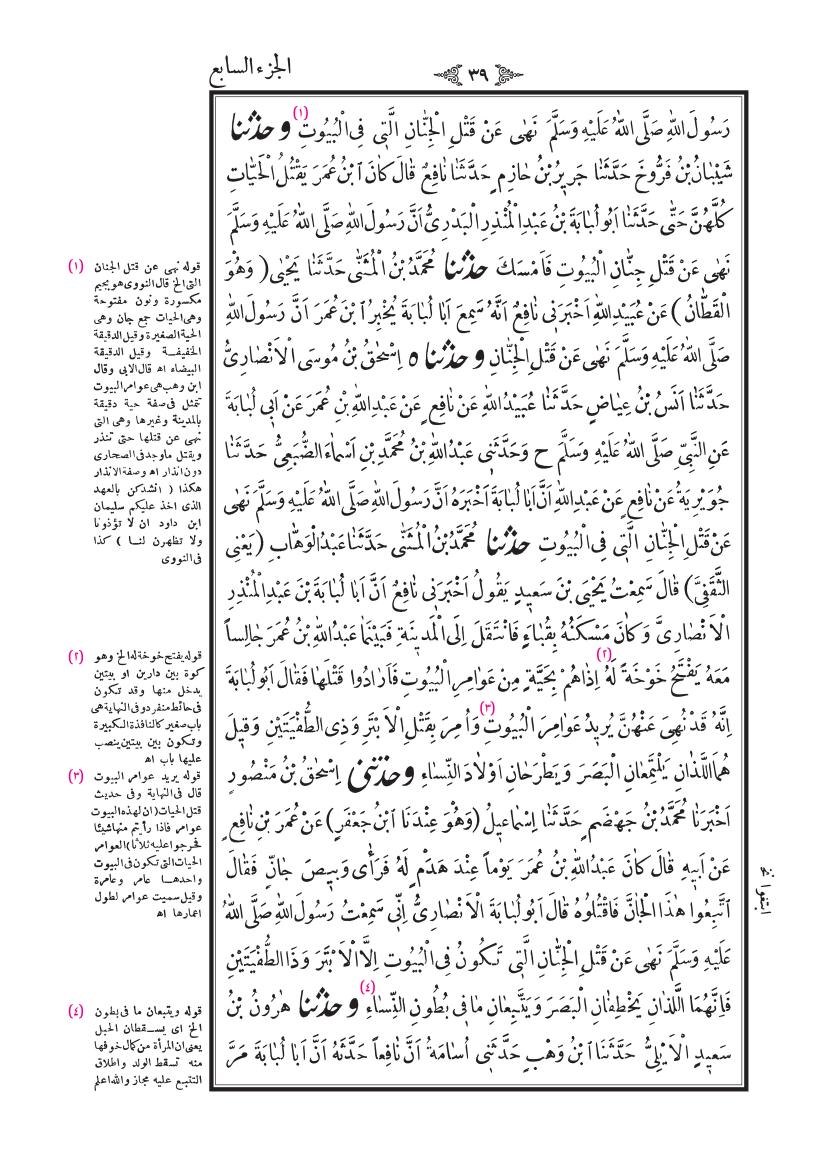 الجزء السابع
٣٩
رَسُولَ اللهِ صَلَّى اللهُ عَلَيْهِ وَسَلَّمَ نَهٰى عَنْ قَتْلِ الْجِنَّانِ الَّتِى فِى الْبُيُوتِ (١) وحدثنا
شَيْبَانُ بْنُ فَرُّوخَ حَدَّثَنَا جَرِيرُ بْنُ حَازِمٍ حَدَّثَنَا نَافِعٌ قَالَ كَانَ ابْنُ عُمَرَ يَقْتُلُ الْحَيَّاتِ
كُلَّهُنَّ حَتّٰى حَدَّثَنَا اَبُو لُبَابَةَ بْنُ عَبْدِ الْمُنْذِرِ الْبَدْرِىُّ اَنَّ رَسُولَ اللهِ صَلَّى اللهُ عَلَيْهِ وَسَلَّمَ
نَهٰى عَنْ قَتْلِ جِنَّانِ الْبُيُوتِ فَاَمْسَكَ حدثنا مُحَمَّدُ بْنُ الْمُثَنّٰى حَدَّثَنَا يَحْيٰى (وَهُوَ
الْقَطَّانُ) عَنْ عُبَيْدِ اللهِ اَخْبَرَنِى نَافِعٌ اَنَّهُ سَمِعَ اَبَا لُبَابَةَ يُخْبِرُ ابْنَ عُمَرَ اَنَّ رَسُولَ اللهِ
صَلَّى اللهُ عَلَيْهِ وَسَلَّمَ نَهٰى عَنْ قَتْلِ الْجِنَّانِ وحدثناه اِسْحٰقُ بْنُ مُوسَى الْاَنْصَارِىُّ
حَدَّثَنَا اَنَسُ بْنُ عِيَاضٍ حَدَّثَنَا عُبَيْدُ اللهِ عَنْ نَافِعٍ عَنْ عَبْدِ اللهِ بْنِ عُمَرَ عَنْ اَبِى لُبَابَةَ
عَنِ النَّبِىِّ صَلَّى اللهُ عَلَيْهِ وَسَلَّمَ ح وَحَدَّثَنِى عَبْدُ اللهِ بْنُ مُحَمَّدِ بْنِ اَسْمَاءَ الضُّبَعِىُّ حَدَّثَنَا
جُوَيْرِيَةُ عَنْ نَافِعٍ عَنْ عَبْدِ اللهِ اَنَّ اَبَا لُبَابَةَ اَخْبَرَهُ اَنَّ رَسُولَ اللهِ صَلَّى اللهُ عَلَيْهِ وَسَلَّمَ نَهٰى
عَنْ قَتْلِ الْجِنَّانِ الَّتِى فِى الْبُيُوتِ حدثنا مُحَمَّدُ بْنُ الْمُثَنّٰى حَدَّثَنَا عَبْدُ الْوَهَّابِ (يَعْنِى
الثَّقَفِىَّ) قَالَ سَمِعْتُ يَحْيَى بْنَ سَعِيدٍ يَقُولُ اَخْبَرَنِى نَافِعٌ اَنَّ اَبَا لُبَابَةَ بْنَ عَبْدِ الْمُنْذِرِ
الْاَنْصَارِىَّ وَكَانَ مَسْكَنُهُ بِقُبَاءٍ فَانْتَقَلَ اِلَى الْمَدِينَةِ فَبَيْنَمَا عَبْدُ اللهِ بْنُ عُمَرَ جَالِساً
مَعَهُ يَفْتَحُ خَوْخَةً لَهُ (٢) اِذَا هُمْ بِحَيَّةٍ مِنْ عَوَامِرِ الْبُيُوتِ فَاَرَادُوا قَتْلَهَا فَقَالَ اَبُو لُبَابَةَ
اِنَّهُ قَدْ نُهِىَ عَنْهُنَّ يُرِيدُ عَوَامِرَ الْبُيُوتِ (٣) وَاُمِرَ بِقَتْلِ الْاَبْتَرِ وَذِى الطُّفْيَتَيْنِ وَقِيلَ
هُمَا اللَّذَانِ يَلْتَمِعَانِ الْبَصَرَ وَيَطْرَحَانِ اَوْلَادَ النِّسَاءِ وحدثنى اِسْحٰقُ بْنُ مَنْصُورٍ
اَخْبَرَنَا مُحَمَّدُ بْنُ جَهْضَمٍ حَدَّثَنَا اِسْمَاعِيلُ (وَهُوَ عِنْدَنَا ابْنُ جَعْفَرٍ) عَنْ عُمَرَ بْنِ نَافِعٍ
عَنْ اَبِيهِ قَالَ كَانَ عَبْدُ اللهِ بْنُ عُمَرَ يَوْماً عِنْدَ هَدْمٍ لَهُ فَرَأٰى وَبِيصَ جَانٍّ فَقَالَ
اتَّبِعُوا هٰذَا الْجَانَّ فَاقْتُلُوهُ قَالَ اَبُو لُبَابَةَ الْاَنْصَارِىُّ اِنِّى سَمِعْتُ رَسُولَ اللهِ صَلَّى اللهُ
عَلَيْهِ وَسَلَّمَ نَهٰى عَنْ قَتْلِ الْجِنَّانِ الَّتِى تَكُونُ فِى الْبُيُوتِ اِلَّا الْاَبْتَرَ وَذَا الطُّفْيَتَيْنِ
فَاِنَّهُمَا اللَّذَانِ يَخْطِفَانِ الْبَصَرَ وَيَتَّبِعَانِ مَا فِى بُطُونِ النِّسَاءِ (٤) وحدثنا هٰرُونُ بْنُ
سَعِيدٍ الْاَيْلِىُّ حَدَّثَنَا ابْنُ وَهْبٍ حَدَّثَنِى اُسَامَةُ اَنَّ نَافِعاً حَدَّثَهُ اَنَّ اَبَا لُبَابَةَ مَرَّ
(١) قوله نهى عن قتل الجنان
التى الخ قال النووى هو بجيم
مكسورة ونون مفتوحة
وهى الحيات جمع جان وهى
الحية الصغيرة وقيل الدقيقة
الخفيفة وقيل الدقيقة
البيضاء اه قال الابى وقال
ابن وهب هى عوامر البيوت
تتمثل فى صفة حية دقيقة
بالمدينة وغيرها وهى التى
نهى عن قتلها حتى تنذر
ويقتل ما وجد فى الصحارى
دون انذار اه وصفة الانذار
هكذا ( انشدكن بالعهد
الذى اخذ عليكم سليمان
ابن داود ان لا تؤذونا
ولا تظهرن لنا ) كذا
فى النووى
(٢) قوله يفتح خوخة له الخ وهو
كوة بين دارين او بيتين
يدخل منها وقد تكون
فى حائط منفرد وفى النهاية هى
باب صغير كالنافذة الكبيرة
وتكون بين بيتين ينصب
عليها باب اه
(٣) قوله يريد عوامر البيوت
قال فى النهاية وفى حديث
قتل الحيات (ان لهذه البيوت
عوامر فاذا رأيتم منها شيئا
فحرجوا عليه ثلاثا) العوامر
الحيات التى تكون فى البيوت
واحدها عامر وعامرة
وقيل سميت عوامر لطول
اعمارها اه
(٤) قوله ويتبعان ما فى بطون
الخ اى يسقطان الحبل
يعنى ان المرأة من كمال خوفها
منه تسقط الولد واطلاق
التتبع عليه مجاز والله اعلم